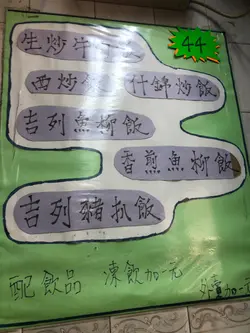 44
生炒牛
西炒
什錦炒飯
吉列魚柳飯
香煎魚柳飯
吉列豬扒飯
配飲品 凍飲加一元
外賣加一元